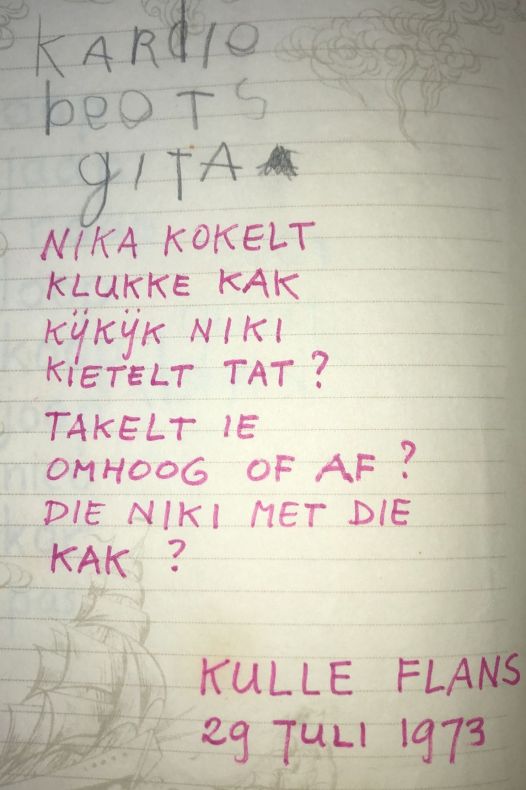 KARdIO
beOTS
gITA
NIKA KOKELT
KLUKKE KAK
KŸKŸK NIKI
KIETELT TAT?
TAKELT IE
OMHOOG OF AF?
DIE NIKI MET DIE
KAK ?
KULLE FLANS
29 JULI 1973